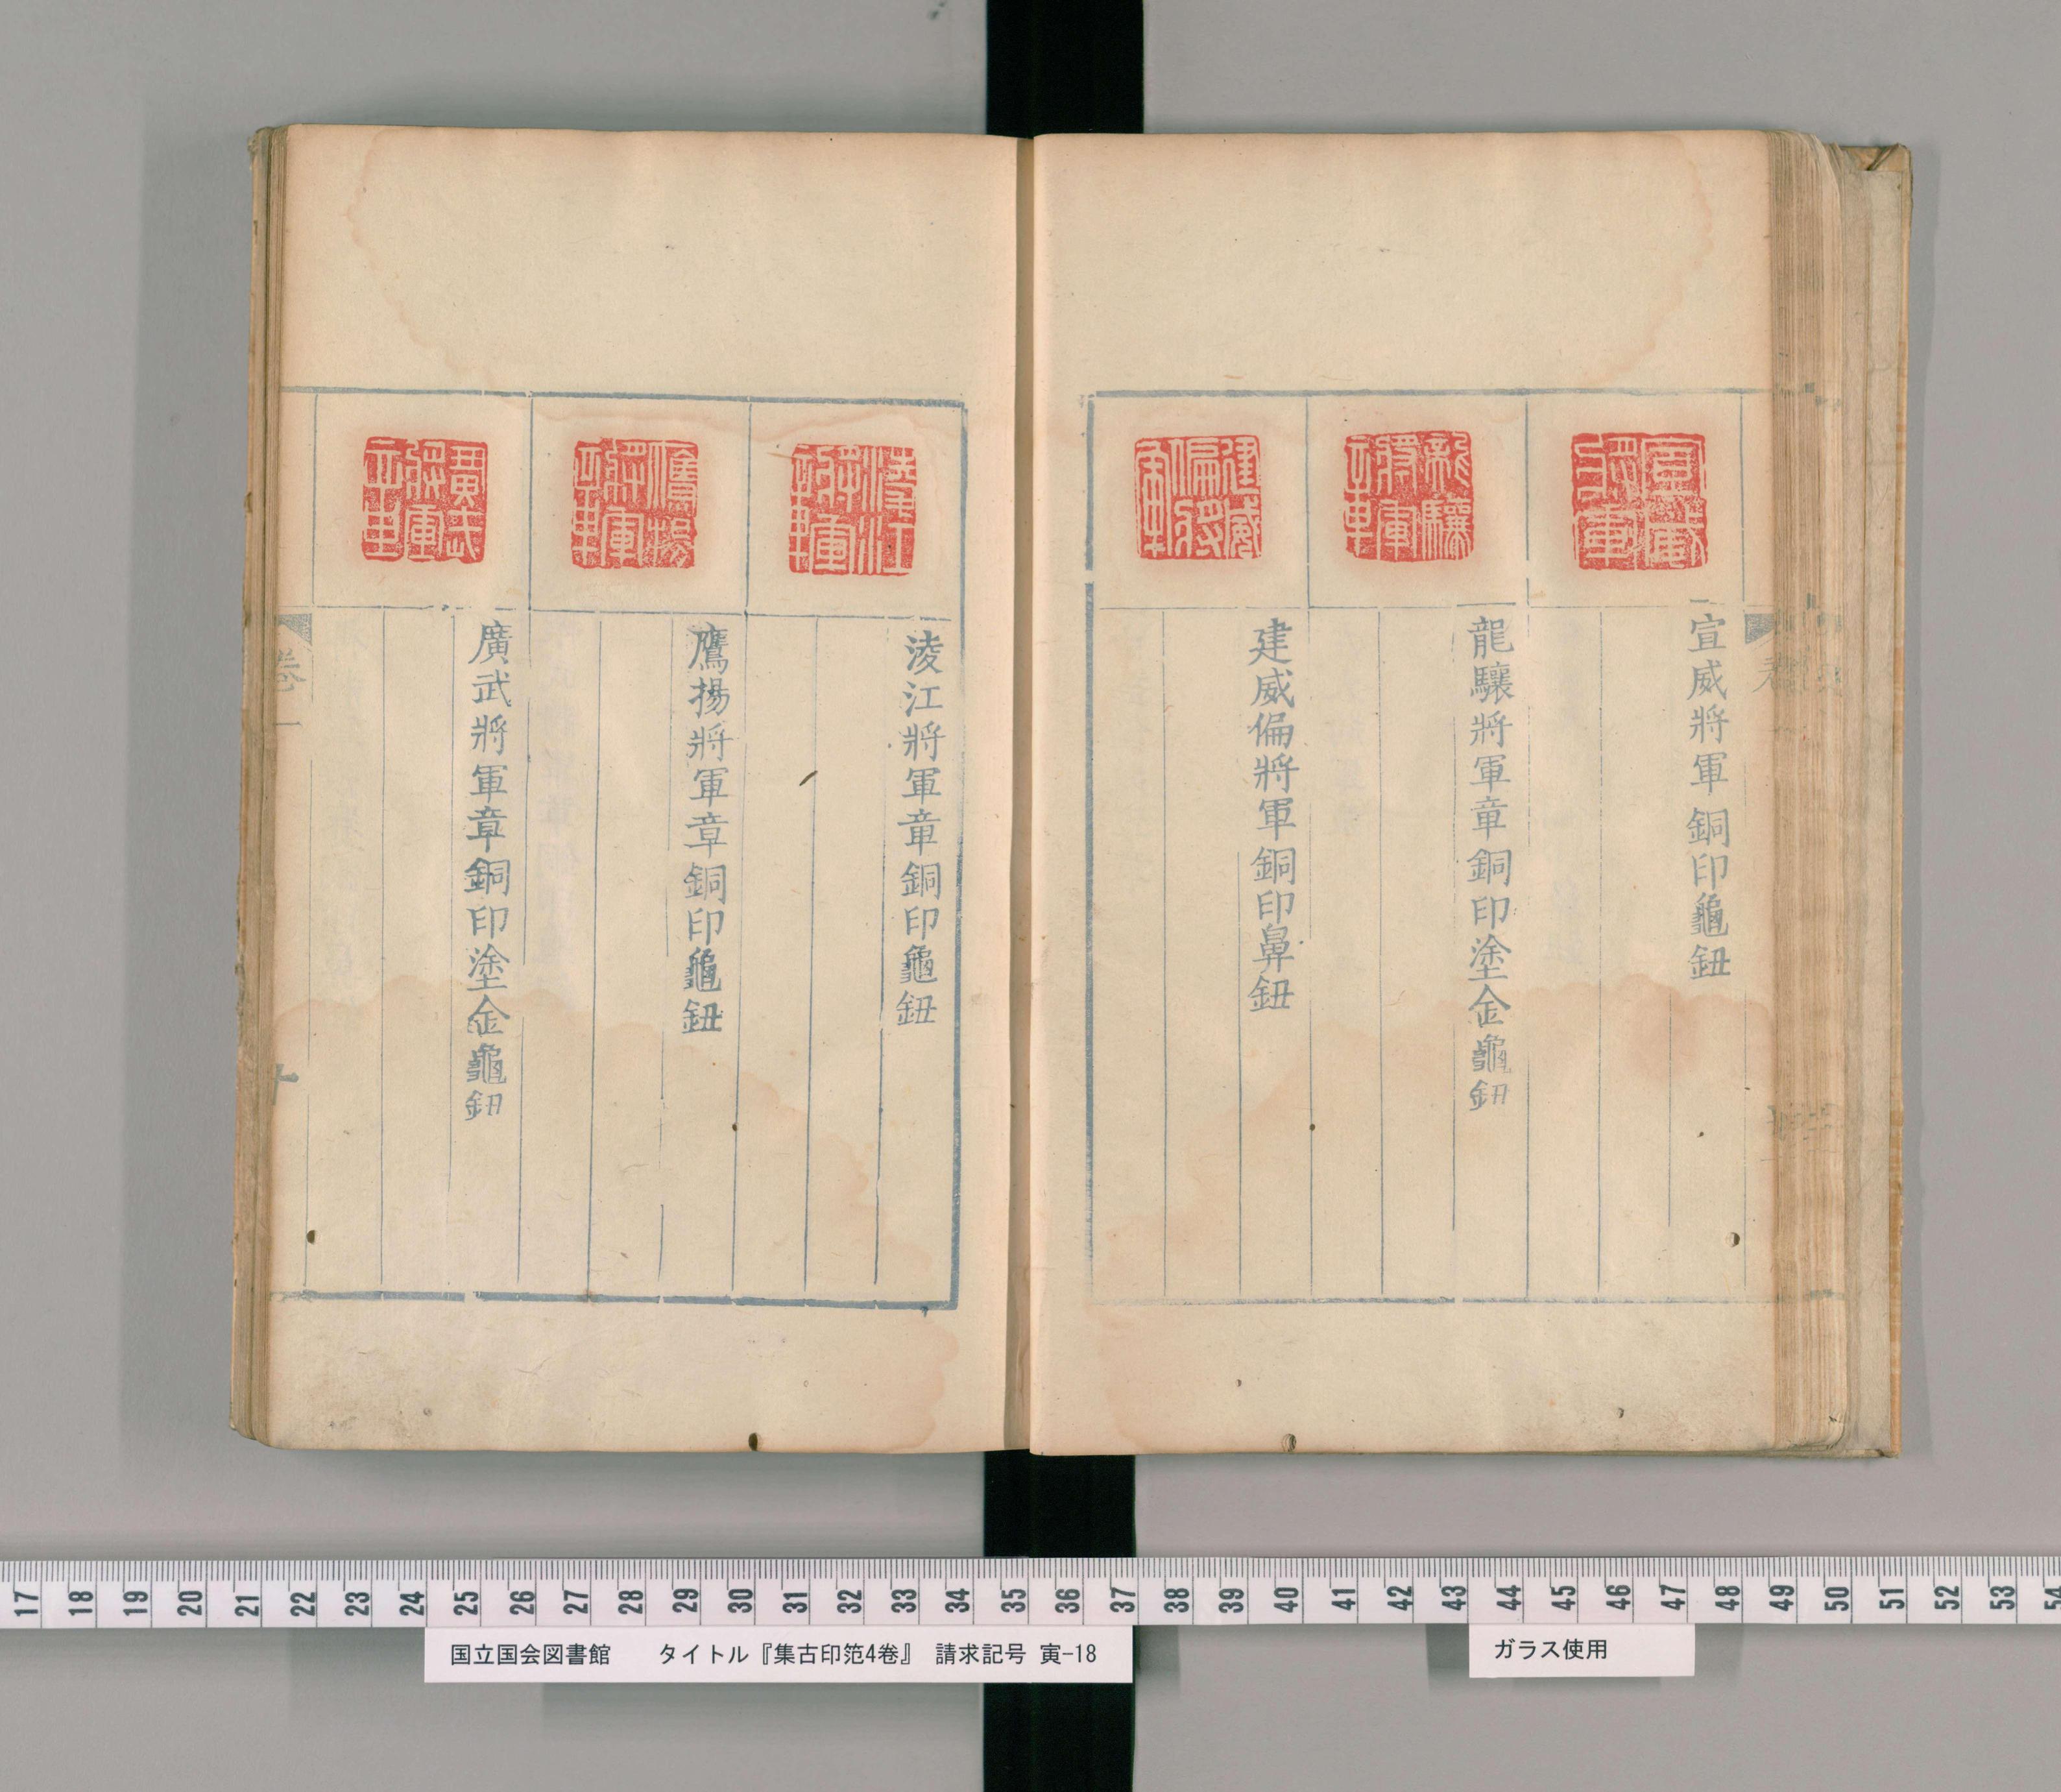 宣威將軍
宣威將軍銅印龜鈕
龍驤將軍章
龍驤將軍章銅印塗金龜鈕
建威偏將軍
建威偏將軍銅印鼻鈕
淩江將軍章
淩江將軍章銅印龜鈕
鷹揚將軍章
鷹揚將軍章銅印龜鈕
廣武將軍章
廣武將軍章銅印塗金龜鈕
卷一
十
17 18 19 20 21 22 23 24 25 26 27 28 29 30 31 32 33 34 35 36 37 38 39 40 41 42 43 44 45 46 47 48 49 50 51 52 53 54
国立国会図書館 タイトル『集古印笵4巻』 請求記号 寅-18
ガラス使用